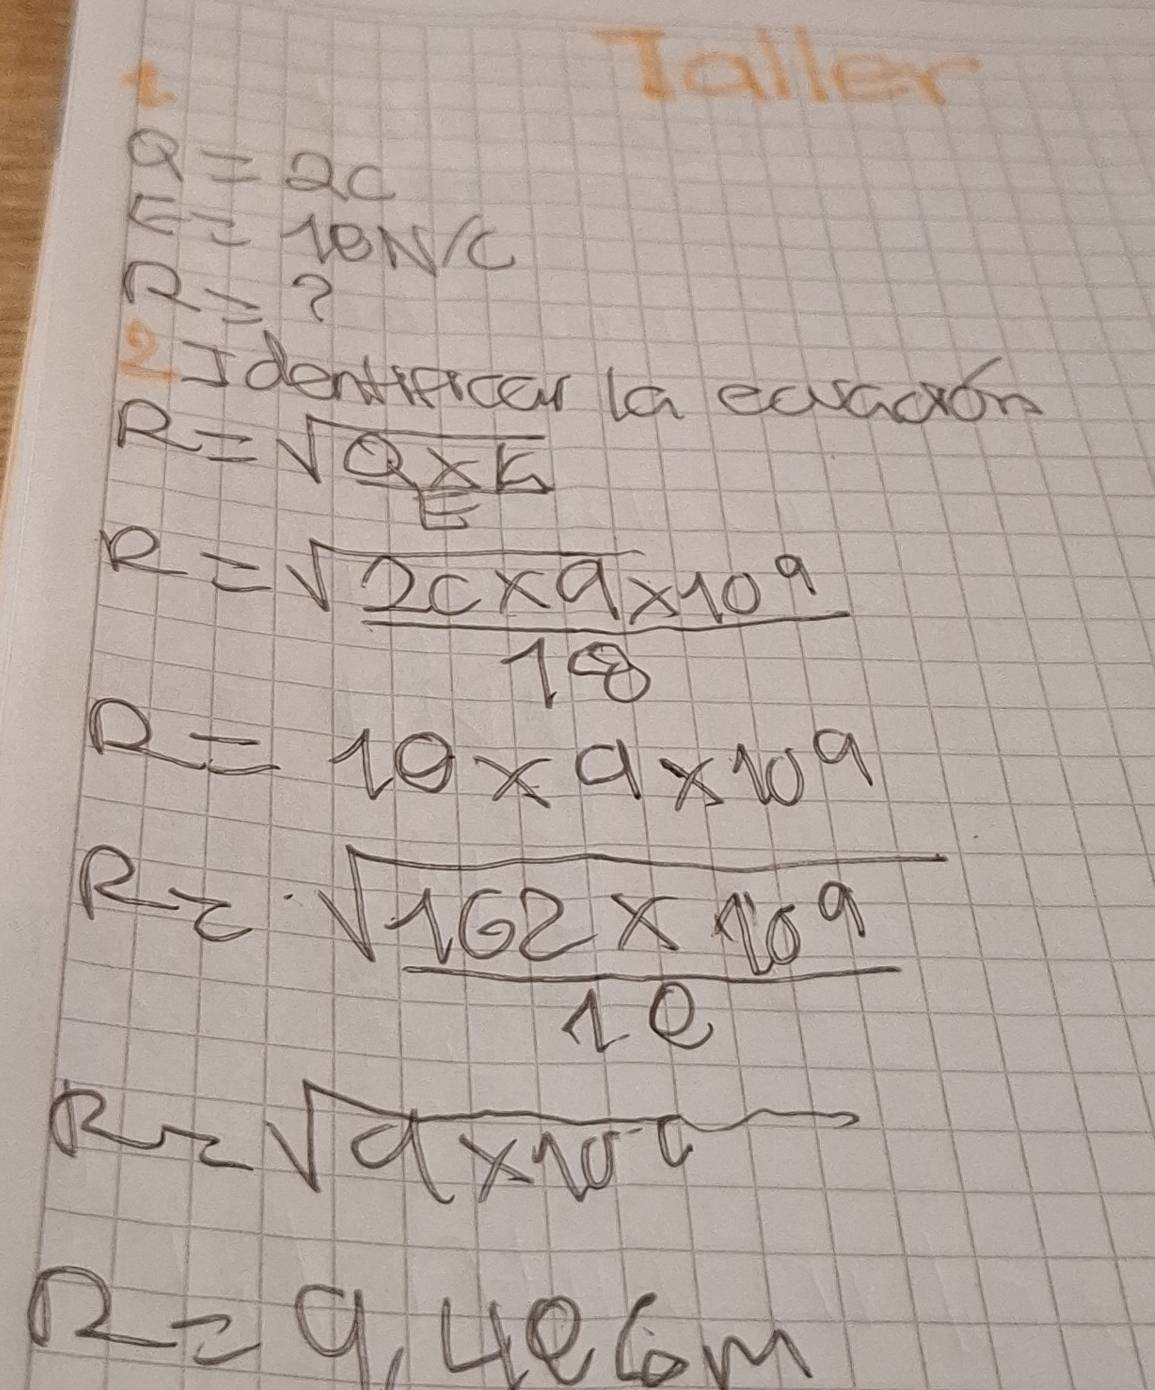 Taller
1.
Q = 2C
E = 18N/C
R = ?
2 Identificar la ecuación
R = √Q×K
E
R = √2C×9×10⁹
18
R = 18×9×10⁹
R = √162×10⁹
18
R = √9×10⁹
R = 9,486m